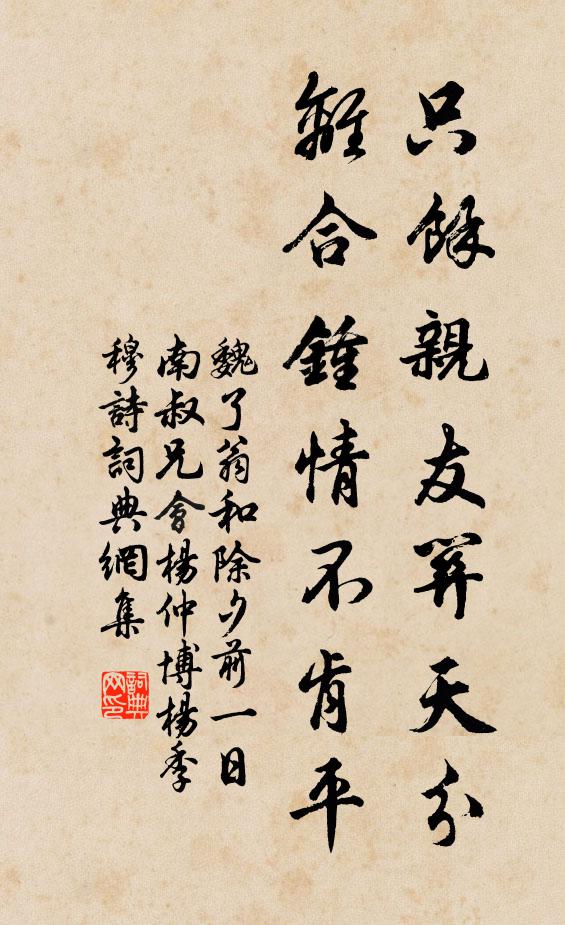 只餘親友關天分
離合鍾情不肯平
魏了翁和除夕前一日
南叔兄會楊仲博楊季
穆詩詞典網集
詞典
网印